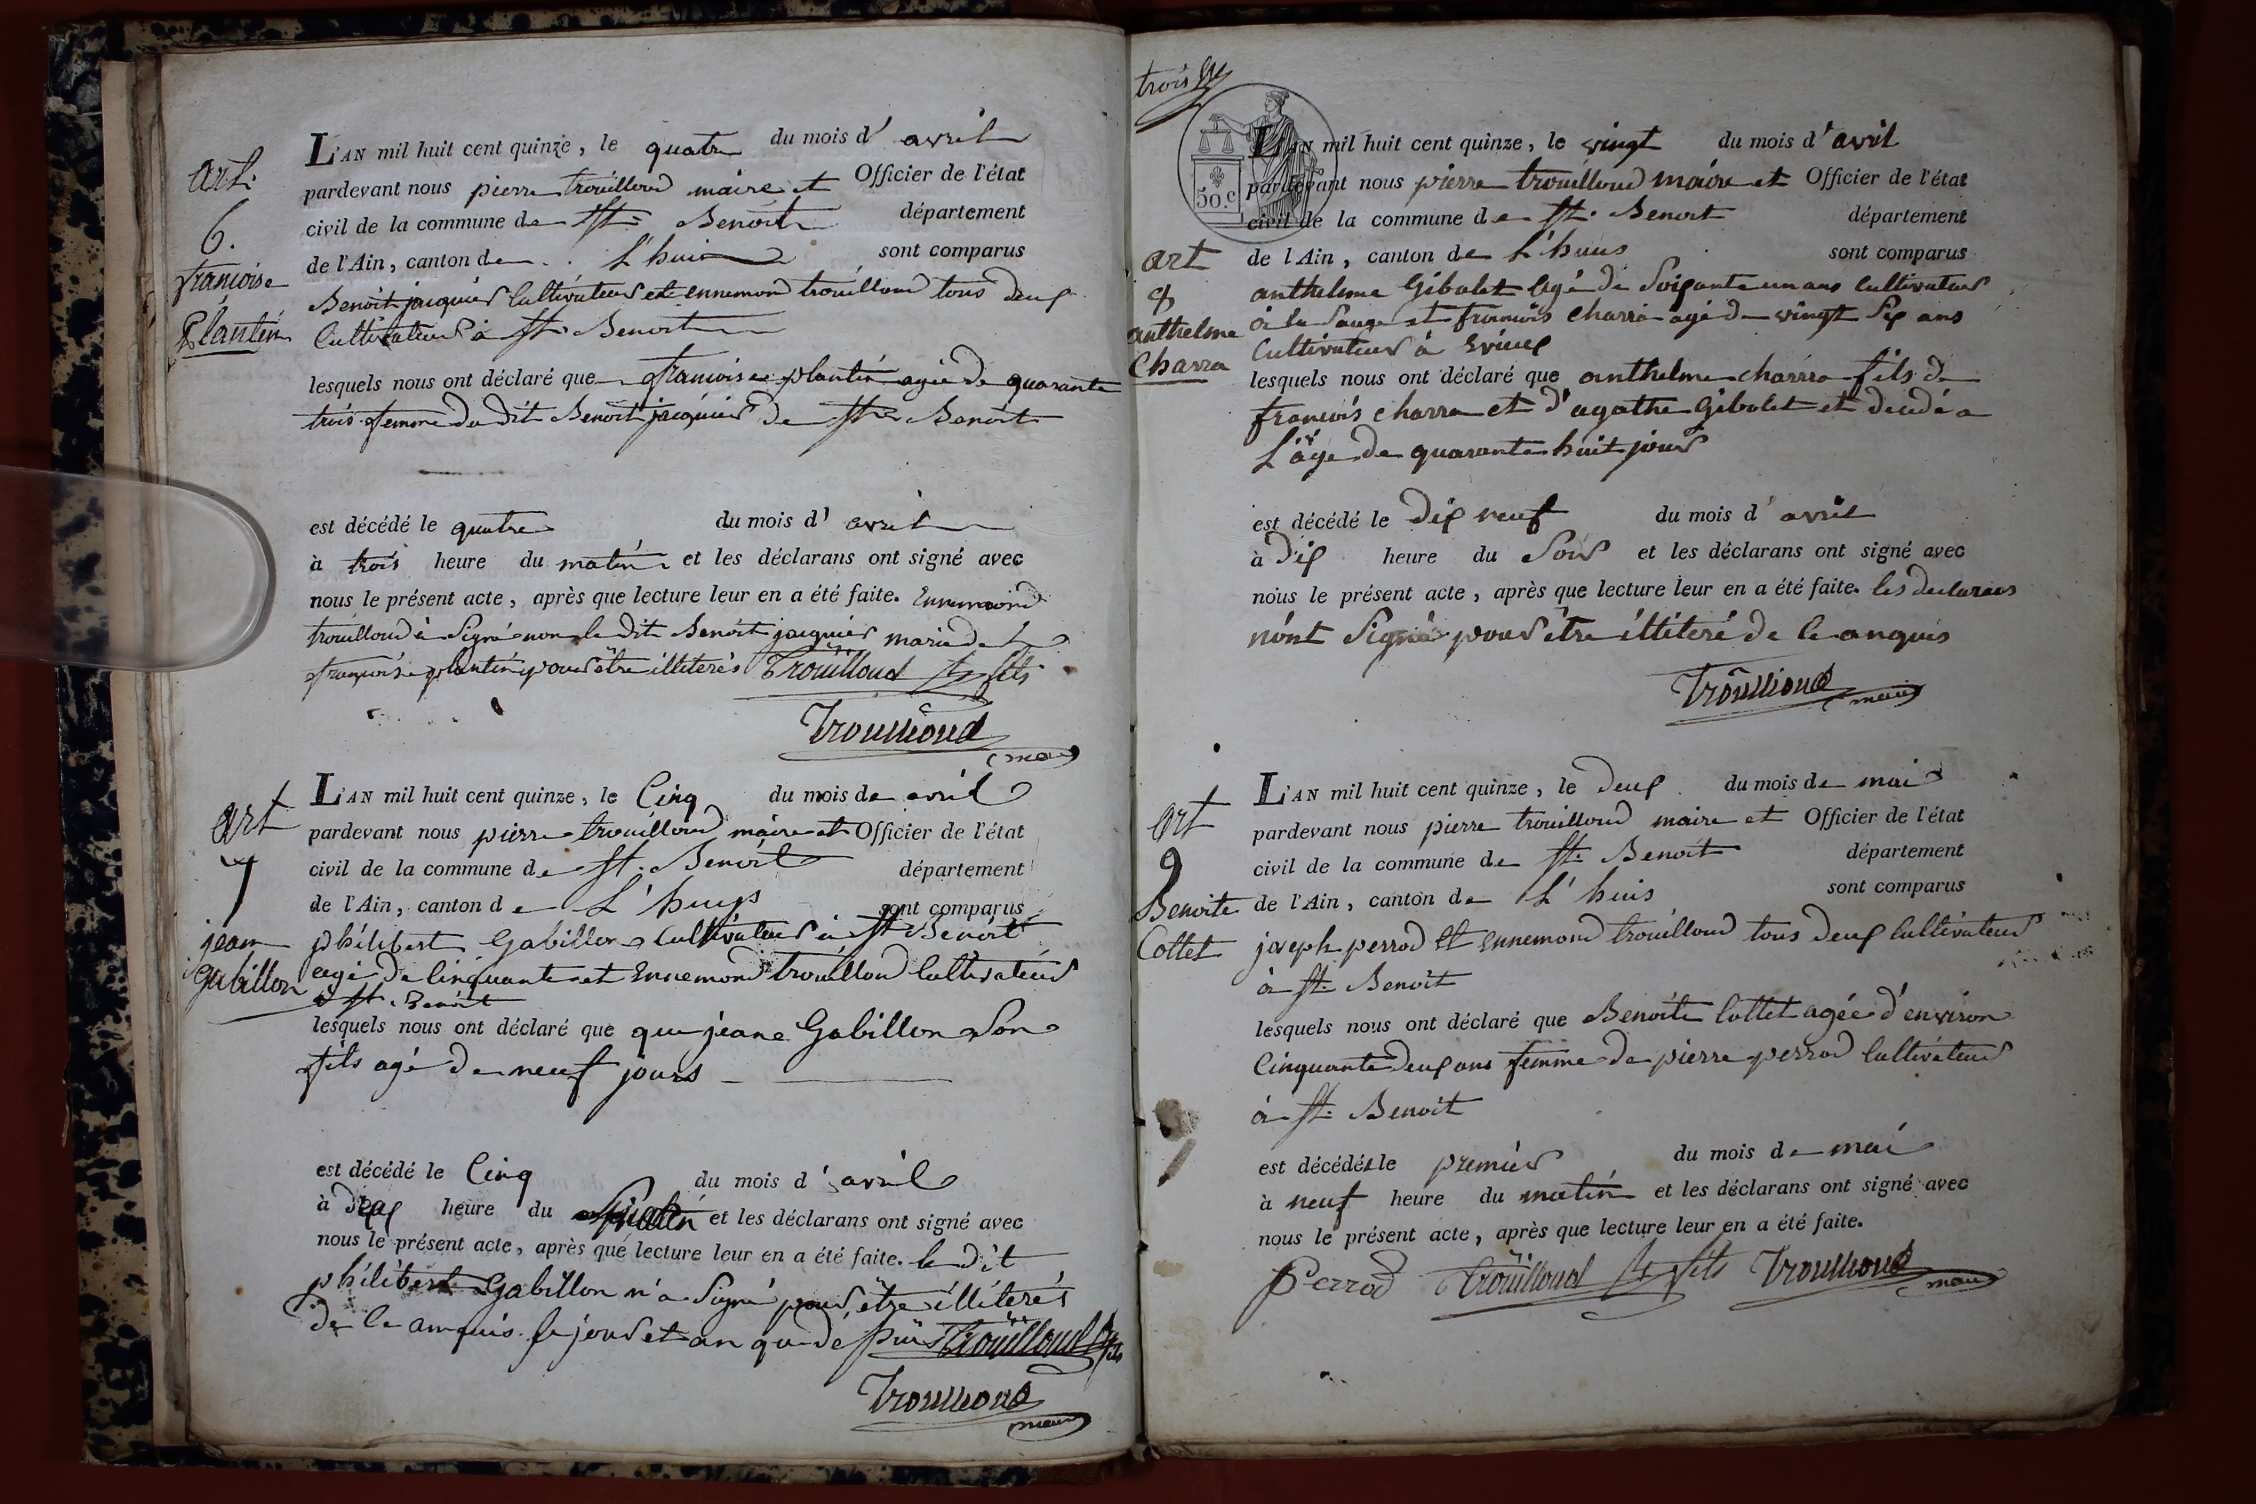 art.
6.
francoise
Plantin
L'AN mil huit cent quinze, le quatre du mois d'avril
pardevant nous pierre trouilloud maire et Officier de l'état
civil de la commune de St. Benoit département
de l'Ain, canton de L'huis sont comparus
Benoit jacquier Cultivateur et ennemond trouilloud tous deux
Cultivateur à St. Benoit
lesquels nous ont déclaré que francoise plantin agée de quarante
trois femme du dit Benoit jacquier de St. Benoit
est décédé le quatre du mois d'avril
à trois heure du matin et les déclarans ont signé avec
nous le présent acte, après que lecture leur en a été faite. Ennemond
trouilloud à Signé non le dit Benoit jacquier marie de
françoise plantin pour être illiterés Trouilloud fils
Trouilloud
maire
art
7
jean
Gabillon
L'AN mil huit cent quinze, le Cinq du mois de avril
pardevant nous pierre trouilloud maire et Officier de l'état
civil de la commune de St. Benoit département
de l'Ain, canton de L'huys sont comparus
philibert Gabillon Cultivateur à St Benoit
agé de cinquante et Ennemond trouilloud Cultivateur
à St. Benoit
lesquels nous ont déclaré que que jeane Gabillon Son
fils agé de neuf jours
est décédé le Cinq du mois d'avril
à heure du matin et les déclarans ont signé avec
nous le présent acte, après que lecture leur en a été faite. le dit
philibert Gabillon n'a Signé pour être illiterés
de le anquis le jour et an que dé sus Trouilloud fils
Trouilloud
maire
trois
50.c
art
8
anthelme
Charra
L'AN mil huit cent quinze, le vingt du mois d'avril
pardevant nous pierre trouilloud maire et Officier de l'état
civil de la commune de St. Benoit département
de l'Ain, canton de L'huis sont comparus
anthelme Gibolet agé de Soixante un ans Cultivateur
à la Sauge et francois charra agé de vingt Six ans
Cultivateur à Evieux
lesquels nous ont déclaré que anthelme charra fils de
francois charra et d'agathe Gibolet et decedé a
L'age de quarante huit jour
est décédé le Dix neuf du mois d'avril
à Dix heure du Soir et les déclarans ont signé avec
nous le présent acte, après que lecture leur en a été faite. les declarans
n'ont Signé pour être illiteré de le anquis
Trouilloud
maire
art
9
Benoite
Collet
L'AN mil huit cent quinze, le deux du mois de mai
pardevant nous pierre trouilloud maire et Officier de l'état
civil de la commune de St. Benoit département
de l'Ain, canton de L'huis sont comparus
joseph perrod et ennemond trouilloud tous deux Cultivateur
à St. Benoit
lesquels nous ont déclaré que Benoite Collet agée d'environ
Cinquante deux ans femme de pierre perrod Cultivateur
à St. Benoit
est décédée le premier du mois de mai
à neuf heure du matin et les déclarans ont signé avec
nous le présent acte, après que lecture leur en a été faite.
Perrod Trouilloud fils Trouilloud
maire